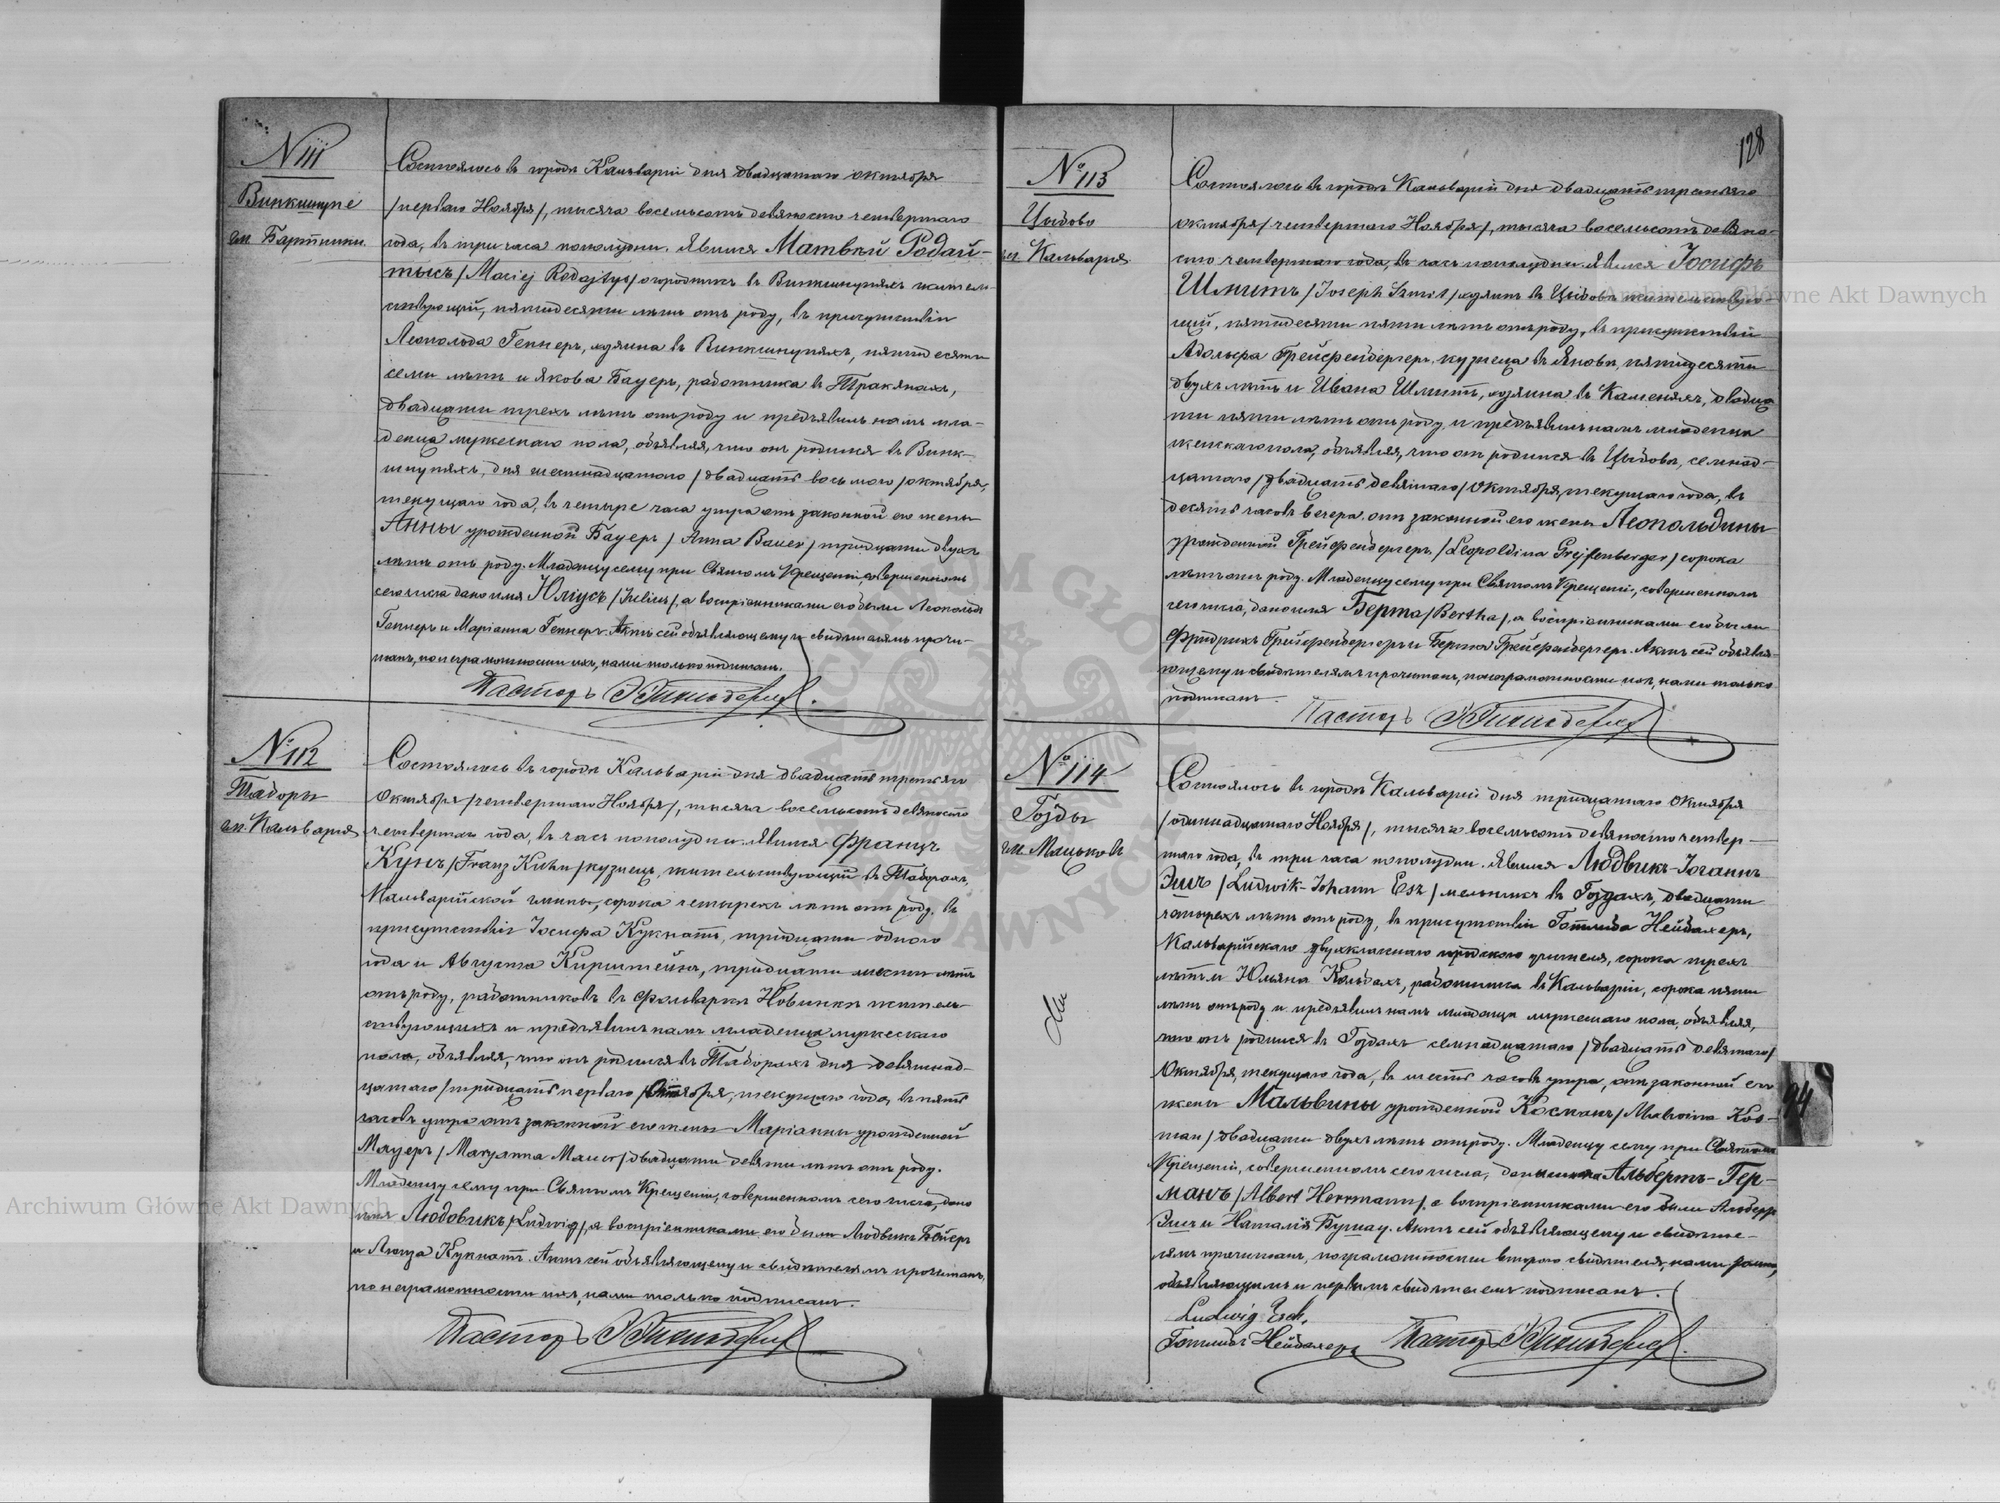 128
№ 111
Винкшнупе
гм. Бартники.
Состоялось въ городѣ Кальваріи дня двадцатаго октября
/перваго Ноября/, тысяча восемьсотъ девяносто четвертаго
года, въ три часа пополудни. Явился Матвѣй Родай-
тысъ /Maciej Rodajtys/ огородникъ въ Винкшнупяхъ житель-
ствующій, пятидесяти лѣтъ отъ роду, въ присутствіи
Леопольда Геннеръ, хозяина въ Винкшнупяхъ, пятидесяти
семи лѣтъ и Якова Бауеръ, работника въ Тракянахъ,
двадцати трехъ лѣтъ отъ роду и предъявилъ намъ мла-
денца мужескаго пола, объявляя, что онъ родился въ Винк-
шнупяхъ, дня шестнадцатаго /двадцать восьмого/ октября,
текущаго года, въ четыре часа утра отъ законной его жены
Анны урожденной Бауеръ /Anna Bauer/ тридцати двухъ
лѣтъ отъ роду. Младенцу сему при Святомъ Крещеніи, совершенномъ
сего числа дано имя Юліусъ /Julius/, а воспріемниками его были Леопольдъ
Геннеръ и Маріанна Геннеръ. Актъ сей объявляющему и свидѣтелямъ прочи-
танъ, по неграмотности ихъ, нами только подписанъ.
Пасторъ
№ 112
Таборы
гм. Кальварія
Состоялось въ городѣ Кальваріи дня двадцать третьяго
Октября /четвертаго Ноября/, тысяча восемьсотъ девяносто
четвертаго года, въ часъ пополудни. Явился Францъ
Кунъ /Franz Kuhn/ кузнецъ, жительствующій въ Таборахъ,
Кальварійской гмины, сорока четырехъ лѣтъ отъ роду, въ
присутствіи Іосифа Кукнатъ, тридцати одного
года и Августа Кирштейнъ, тридцати шести лѣтъ
отъ роду, работниковъ въ фольваркѣ Новинки житель-
ствующихъ и предъявилъ намъ младенца мужескаго
пола, объявляя, что онъ родился въ Таборахъ дня девятнад-
цатаго /тридцать перваго/ Октября, текущаго года, въ пять
часовъ утра отъ законной его жены Маріанны урожденной
Мауеръ /Maryanna Mauer/ двадцати девяти лѣтъ отъ роду.
Младенцу сему при Святомъ Крещеніи, совершенномъ сего числа, дано
имя Людовикъ /Ludwig/, а воспріемниками его были Людвикъ Бейеръ
и Луиза Кукнатъ. Актъ сей объявляющему и свидѣтелямъ прочитанъ,
по неграмотности ихъ, нами только подписанъ.
Пасторъ
№ 113
Цыбово
гм. Кальварія
Состоялось въ городѣ Кальваріи дня двадцать третьяго
октября /четвертаго Ноября/, тысяча восемьсотъ девяно-
сто четвертаго года, въ часъ пополудни. Явился Іосифъ
Шмитъ /Joseph Szmit/ хозяинъ въ Цыбовѣ жительствую-
щій, пятидесяти пяти лѣтъ отъ роду, въ присутствіи
Адольфа Грейфенбергеръ, кузнеца въ Яновѣ, пятидесяти
двухъ лѣтъ и Ивана Шмитъ, хозяина въ Каменяхъ, двадца-
ти пяти лѣтъ отъ роду, и предъявилъ намъ младенца
женскаго пола, объявляя, что онъ родился въ Цыбовѣ, семнад-
цатаго /двадцать девятаго/ Октября, текущаго года, въ
десять часовъ вечера, отъ законной его жены Леопольдины
урожденной Грейфенбергеръ /Leopoldina Grejfenberger/ сорока
лѣтъ отъ роду. Младенцу сему при Святомъ Крещеніи, совершенномъ
сего числа, дано имя Берта /Bertha/, а воспріемниками его были
Фридрихъ Грейфенбергеръ и Берта Грейфенбергеръ. Актъ сей объявля-
ющему и свидѣтелямъ прочитанъ, по неграмотности ихъ, нами только
подписанъ.
Пасторъ
№ 114
Гозды
гм. Мацьковъ
Состоялось въ городѣ Кальваріи дня тридцатаго октября
/одиннадцатаго Ноября/, тысяча восемьсотъ девяносто четвер-
таго года, въ три часа пополудни. Явился Людвикъ-Іоганнъ
Эшъ /Ludwik-Johann Esz/ мельникъ въ Гоздахъ, двадцати
четырехъ лѣтъ отъ роду, въ присутствіи Готлиба Нейбахеръ,
Кальварійскаго двухкласнаго городского учителя, сорока трехъ
лѣтъ и Юльяна Кольбахъ, работника въ Кальваріи, сорока пяти
лѣтъ отъ роду и предъявилъ намъ младенца мужескаго пола, объявляя,
что онъ родился въ Гоздахъ семнадцатаго /двадцать девятаго/
Октября, текущаго года, въ шесть часовъ утра, отъ законной его
жены Мальвины урожденной Косманъ /Malwina Kos-
man/ двадцати двухъ лѣтъ отъ роду. Младенцу сему при Святомъ
Крещеніи, совершенномъ сего числа, даны имена Альбертъ-Гер-
манъ /Albert Herrmann/, а воспріемниками его были Альбертъ
Эшъ и Наталія Бушау. Актъ сей объявляющему и свидѣте-
лямъ прочитанъ, по неграмотности второго свидѣтеля, нами только,
объявляющимъ и первымъ свидѣтелемъ подписанъ.
Ludwig Esch.
Готлибъ Нейбахеръ
Пасторъ
94
Archiwum Główne Akt Dawnych
Archiwum Główne Akt Dawnych
ARCHIWUM GŁÓWNE AKT DAWNYCH